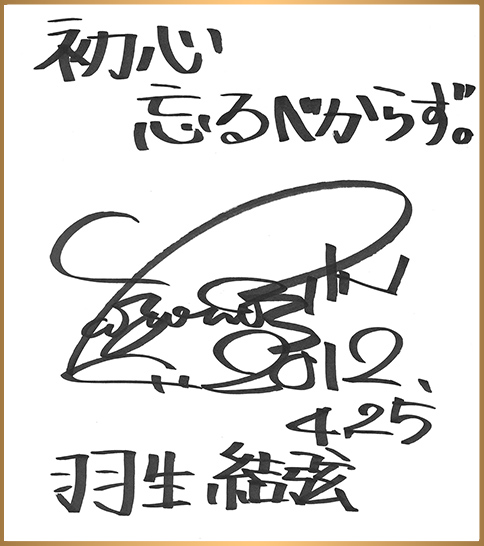 初心
忘るべからず。
2012.
4.25
羽生結弦